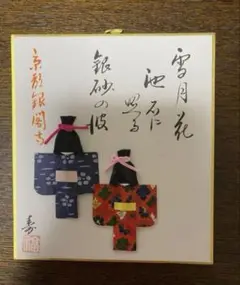 雪月花
池石に
照る
銀砂の波
京都銀閣寺
寿